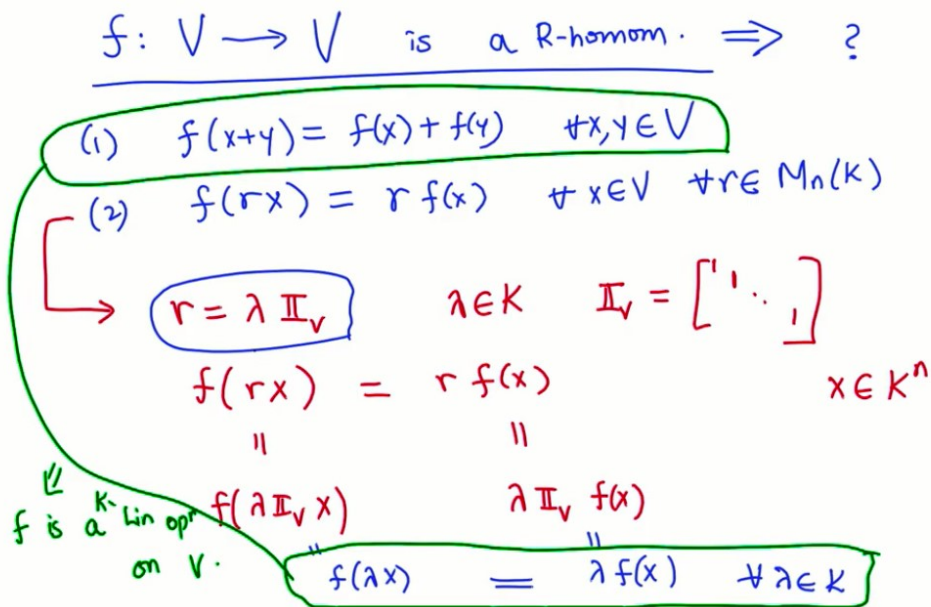 f: V ⟶ V is a R-homom. ⟹ ?
(1) f(x+y) = f(x) + f(y) ∀x,y ∈ V
(2) f(rx) = r f(x) ∀ x ∈ V ∀r ∈ Mn(K)
r = λ 𝕀_V λ ∈ K 𝕀_V = [1 1 ⋱ 1]
f(rx) = r f(x) x ∈ Kⁿ
|| ||
f(λ 𝕀_V x) λ 𝕀_V f(x)
|| ||
f(λx) = λ f(x) ∀ λ ∈ K
⇓
f is a K- Lin opʳ
on V.